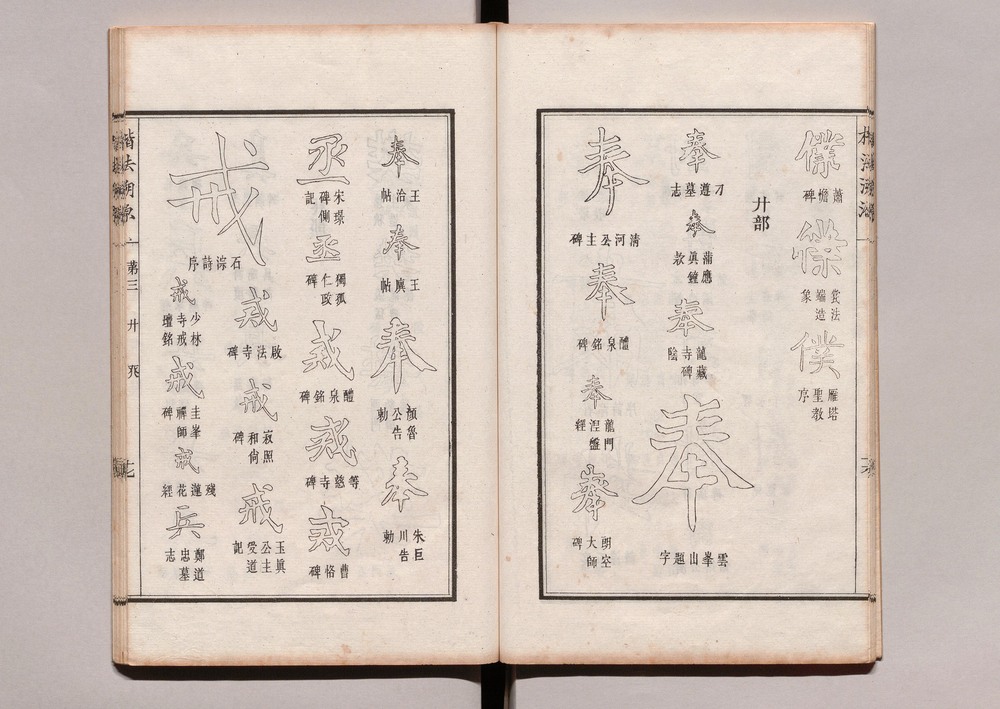 僕
蕭憺碑
僕
法端造象
僕
雁塔聖教序
廾部
奉
刁遵墓志
奉
蒲應眞鐘款
奉
龍藏寺碑陰
奉
雲峯山題字
奉
清河公主碑
奉
醴泉銘碑
奉
龍門涅盤經
奉
朗空大師碑
奉
王治帖
奉
王廙帖
奉
顏魯公告勅
奉
朱巨川告勅
丞
宋璟碑側記
丞
獨孤仁政碑
戒
醴泉銘碑
戒
等慈寺碑
戒
曹恪碑
戒
石淙詩序
戒
啟法寺碑
戒
寂照和尚碑
戒
玉眞公主受道記
戒
少林寺戒壇銘
戒
圭峯禪師碑
戒
殘蓮花經
兵
鄭道忠墓志
楷法溯源 第三 廾